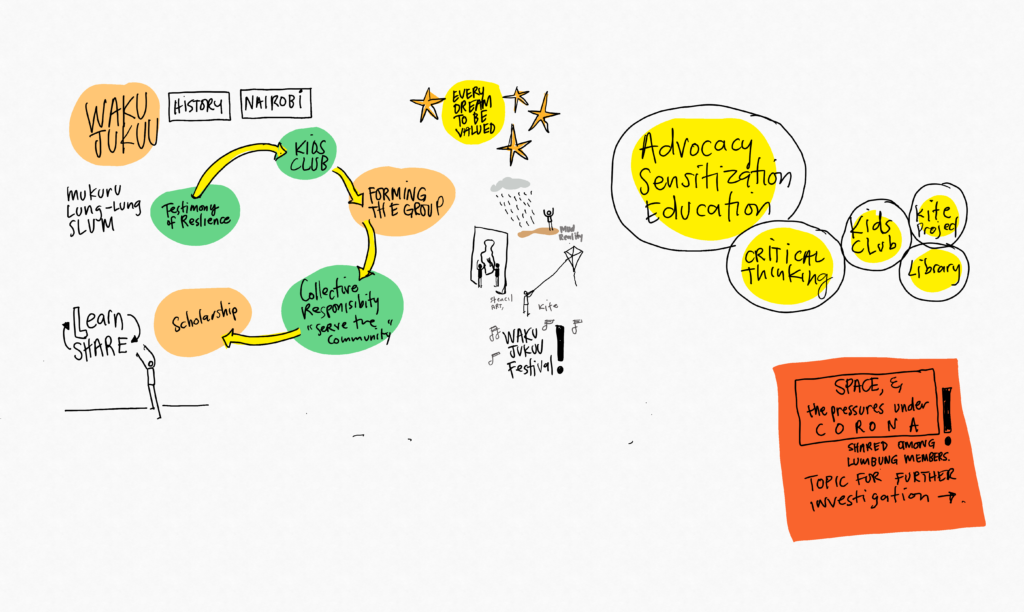 WAKU
JUKUU
HISTORY
NAIROBI
MUKURU
LUNG-LUNG
SLUM
Testimony
of Reslience
KIDS
CLUB
FORMING
THE GROUP
Collective
Responsibility
"serve the
community"
Scholarship
Learn
SHARE
EVERY
DREAM
TO BE
VALUED
MUD
Reality
stencil
ART,
kite
WAKU
JUKUU
Festival!
Advocacy
Sensitization
Education
CRITICAL
Thinking
Kids
CLUB
kite
Project
Library
SPACE, &
the pressures under
CORONA!
SHARED AMONG
LUMBUNG MEMBERS.
TOPIC FUR FURTHER
investigation →.